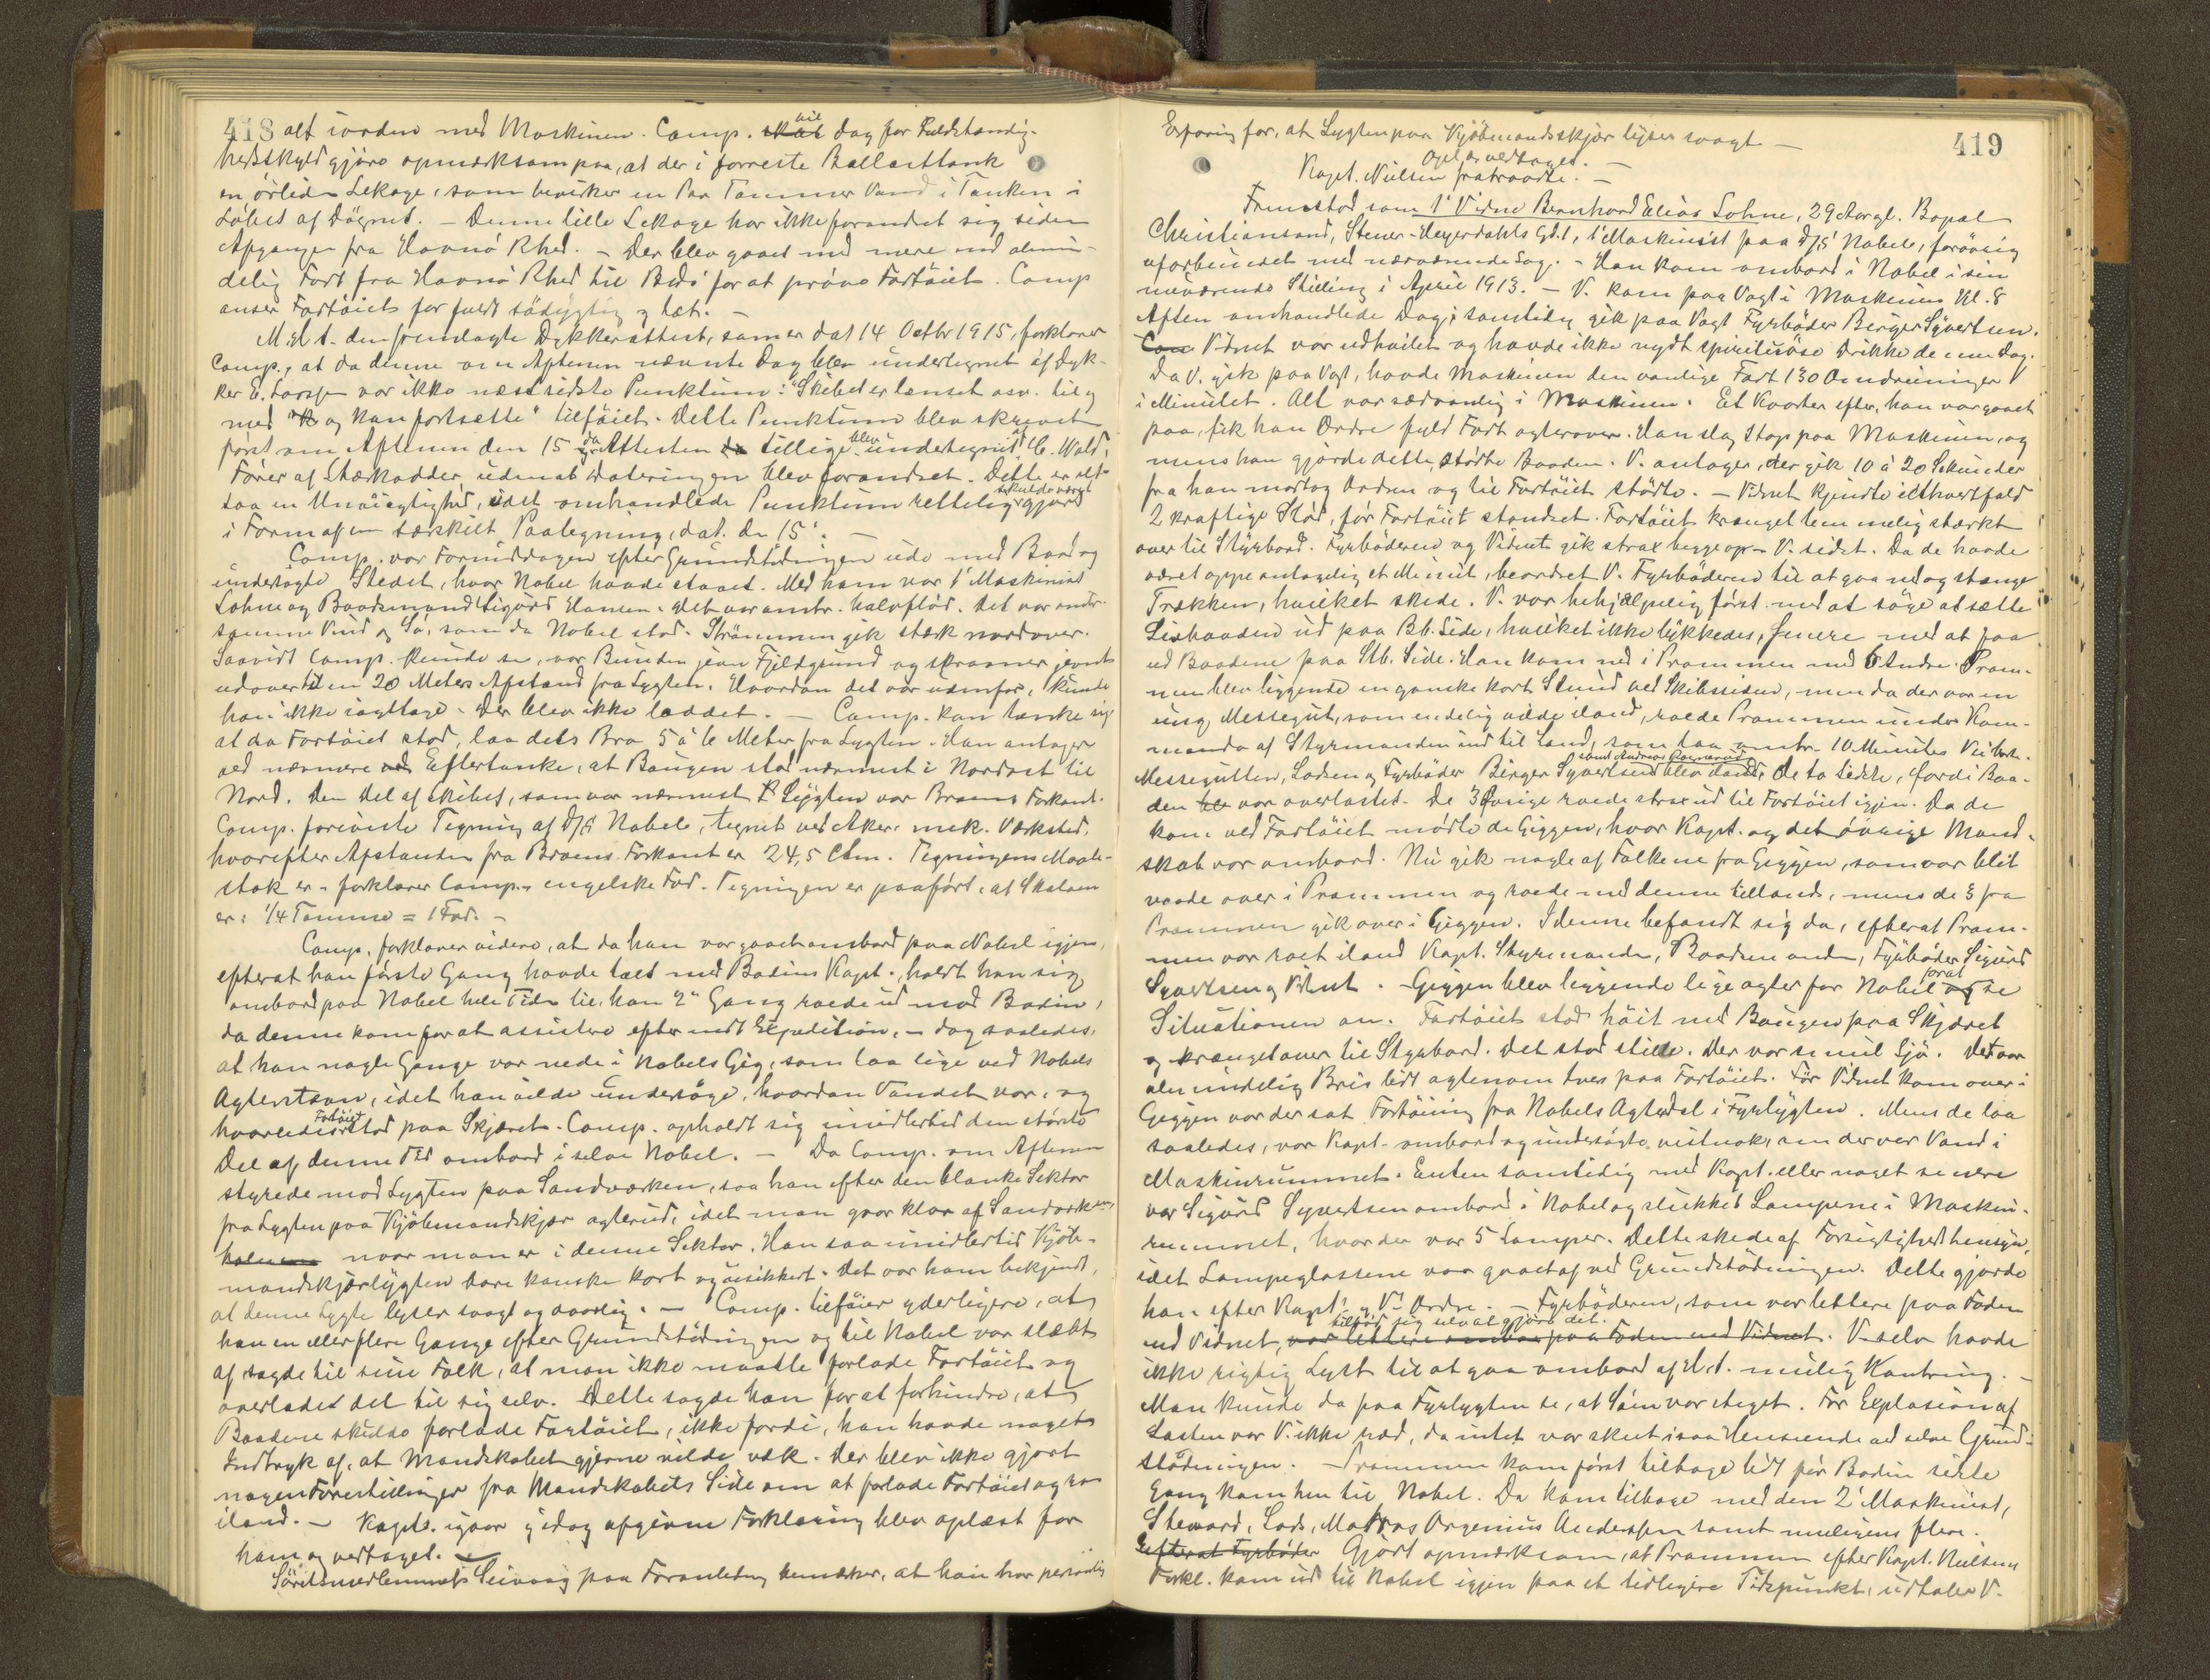 418 alt iorden med Maskinen. Comp. skal vil dog for Fuldstændig-
hedsskyld gjøre opmærksom paa, at der i forreste Ballasttank
en ørliden Lekage, som bevirker en Par Tommer Vand i Tanken i
Løbet af Døgnet. - Denne lille Lekage har ikke forandret sig siden
Afgangen fra Havnö Rhed. - Der blev gaaet med mere end almin-
delig Fart fra Havnö Rhed til Bodö for at prøve Fartöiet. Comp
anser Fartöiet for fuldt södygtig og tæt. -
M.H.t. den fremlagte Dykkerattest, som er dat 14 Octbr 1915, forklarer
Comp., at da denne om Aftenen nævnte Dag blev undertegnet af Dyk-
ker E. Larssen var ikke næstsidste Punktum: "Skibet er lænset osv. til og
med "og kan fortsætte" tilföiet. Dette Punktum blev skrevet
først om Aftenen den 15 da Attesten tillige blev undertegnet af C. Wold,
Fører af Stærkodder, udenat Dateringen blev forandret. Dette er alt-
saa en Unöiagtighed, idet omhandlede Punktum rettelig skulde været gjort
i Form af en særskilt Paategning, dat. den 15'. -
Comp. var Formiddagen efter Grundstødningen ude med Baad og
undersøgte Stedet, hvor Nobel havde staaet. Med ham var 1' Maskinist
Lohne og Baadsmand Sigurd Hansen. Det var omtr. halvflod. Det var omtr.
samme Vind og Sö, som da Nobel stod. Strømmen gik stærk nordover.
Saavidt Comp. kunde se, var Bunden jevn Fjeldgrund og skraaner jevnt
udover til en 20 Meters Afstand fra Lygten. Hvordan det var udenfor, kunde
han ikke iagttage. Der blev ikke loddet. - Comp. kan tænke sig
at da Fartöiet stod, laa dets Bro 5 à 6 Meter fra Lygten. Han antager
ved nærmere Eftertanke, at Baugen stod nærmest i Nordost til
Nord. Den Del af Skibet, som var nærmest Lygten var Broens Forkant.
Comp. foreviste Tegning af D/S Nobel, tegnet ved Akers mek. Værksted,
hvorefter Afstanden fra Broens Forkant er 24,5 Ctm. Tegningens Maale-
stok er - forklarer Comp. - engelske Fod. Tegningen er paaført, at Skalaen
er: 1/4 Tomme = 1 Fod. -
Comp. forklarer videre, at da han var gaaet ombord paa Nobel igjen,
efterat han første Gang havde talt med Bodins Kapt., holdt han sig
ombord paa Nobel hele Tiden til han 2' Gang roede ud mod Bodin,
da denne kom for at assistere efter endt Expedition, - dog saaledes,
at han nogle Gange var nede i Nobels Gig, som laa lige ved Nobels
Agterstavn, idet han vilde undersøge, hvordan Vandet var, og
hvorledes Fartöiet stod paa Skjæret. Comp. opholdt sig imidlertid den største
Del af denne Tid ombord i selve Nobel. - Da Comp. om Aftenen
styrede mod Lygten paa Sandværken, saa han efter den blanke Sektor
fra Lygten paa Kjöbmandskjær agterud, idet man gaar klar af Sandværken,
naar man er i denne Sektor. Han saa imidlertid Kjöb-
mandskjærlygten bare kanske kort og usikkert. Det var ham bekjendt,
at denne Lygte lyser svagt og daarlig. - Comp. tilföier yderligere, at
han en eller flere Gange efter Grundstødningen og til Nobel var slæbt
af sagde til sine Folk, at man ikke maatte forlade Fartöiet og
overlade det til sig selv. Dette sagde han for at forhindre, at
Baadene skulde forlade Fartöiet, ikke fordi, han havde noget
Indtryk af, at Mandskabet gjerne vilde væk. Der blev ikke gjort
nogen Forestillinger fra Mandskabets Side om at forlade Fartöiet og ro
iland. - Kapts. igaar og idag afgivne Forklaring blev oplæst for
ham og vedtaget. -
Söretsmedlemmet Seivaag paa Foranledning bemærker, at han har personlig
419
Erfaring for, at Lygten paa Kjöbmandsskjær lyser svagt -
Opl. og vedtaget. -
Kapt. Nielsen fratraadte. -
Fremstod som 1' Vidne Bernhard Elias Lohne, 29 Aargl. Bopæl
Christiansand, Stener-Heyerdahls Gd. 1, 1' Maskinist paa D/S Nobel, forøvrig
uforbundet med nærværende Sag. - Han kom ombord i Nobel i sin
nuværende Stilling i April 1913. - V. kom paa Vagt i Maskinen Kl. 8
Aften omhandlede Dag; samtidig gik paa Vagt Fyrbøder Birger Syvertsen.
Vidnet var udhvilet og havde ikke nydt spirituöse Drikke denne Dag.
Da V. gik paa Vagt, havde Maskinen den vanlige Fart 130 Omdreininger
i Minutet. Alt var sædvanlig i Maskinen. Et Kvarter efter, han var gaaet
paa, fik han Ordre fuld Fart agterover. Han slog Stop paa Maskinen, og
mens han gjorde dette, stødte Baaden. V. antager, der gik 10 à 20 Sekunder
fra han modtog Ordren og til Fartöiet stødte. - Vidnet kjendte ialthvertfald
2 kraftige Stød, før Fartöiet standset. Fartöiet krænget temmelig stærkt
over til Styrbord. Fyrbøderen og Vidnet gik strax begge op - V. sidst. Da de havde
været oppe antagelig et Minut, beordret V. Fyrbøderen til at gaa ned og stænge
Trækken, hvilket skede. V. var behjælpelig først med at søge at sætte
Lisbaaden ud paa Bb. Side, hvilket ikke lykkedes, senere med at faa
ud Baadene paa Stb. Side. Han kom ned i Prammen med 6 Andre. Pram-
men blev liggende en ganske kort Stund ved Skibssiden, men da der var en
ung Messegut, som endelig vilde iland, roede Prammen under Kom-
mando af Styrmanden ind til Land, som laa omtr. 10 Minutes Vei bort.
Messegutten, Lodsen og Fyrbøder Birger Syvertsen blev iland, de to sidste, fordi Baa-
den var overlastet. De 3 Øvrige roede strax ud til Fartöiet igjen. Da de
kom ved Fartöiet mødte de Giggen, hvor Kapt. og det øvrige Mand-
skab var ombord. Nu gik nogle af Folkene fra Giggen, som var blit
vaade over i Prammen og roede med denne tillands, mens de 3 fra
Prammen gik over i Giggen. I denne befandt sig da, efterat Pram-
men var roet iland Kapt. Styrmanden, Baadsmanden, Fyrbøder Sigurd
Syvertsen og Vidnet. Giggen blev liggende lige agter for Nobel forat se
Situationen an. Fartöiet stod höit med Baugen paa Skjæret
og krænget over til Styrbord. Det stod stille. Der var semil Sjö. Det var
almindelig Bris lidt agtenom tvers paa Fartöiet. Før Vidnet kom over i
Giggen var der sat Fortöining fra Nobels Agterdel i Fyrlygten. Mens de laa
saaledes, var Kapt. ombord og undersøgte vistnok, om der var Vand i
Maskinrummet. Enten samtidig med Kapt. eller noget senere
var Sigurd Syvertsen ombord i Nobel og slukket Lamperne i Maskin-
rummet, hvor der var 5 Lamper. Dette skede af Forsigtighedshensyn,
idet Lampeglassene var gaaet af ved Grundstødningen. Dette gjorde
han efter Kapt.s og V.s Ordre. - Fyrbøderen, som var lettere paa Foden
end Vidnet, tilbød sig selv at gjøre det. var lettere ombord paa Foden end Vidnet. V. selv havde
ikke rigtig Lyst til at gaa ombord af H.t. mulig Kantring. -
Man kunde da paa Fyrlygten se, at Søen var steget. For Explosion af
Lasten var V. ikke ræd, da intet var skeet i saa Henseende ved selve Grund-
stødningen. - Prammen kom først tilbage lidt før Bodin sidste
Gang kom hen til Nobel. Da kom tilbage med den 2' Maskinist,
Steward, Lods, Matros Argenius Anderssen samt muligens flere.
Efterat Fyrbøder Gjort opmærksom, at Prammen efter Kapt. Nielsens
Forkl. kom ud til Nobel igjen paa et tidligere Tidspunkt, udtaler V.